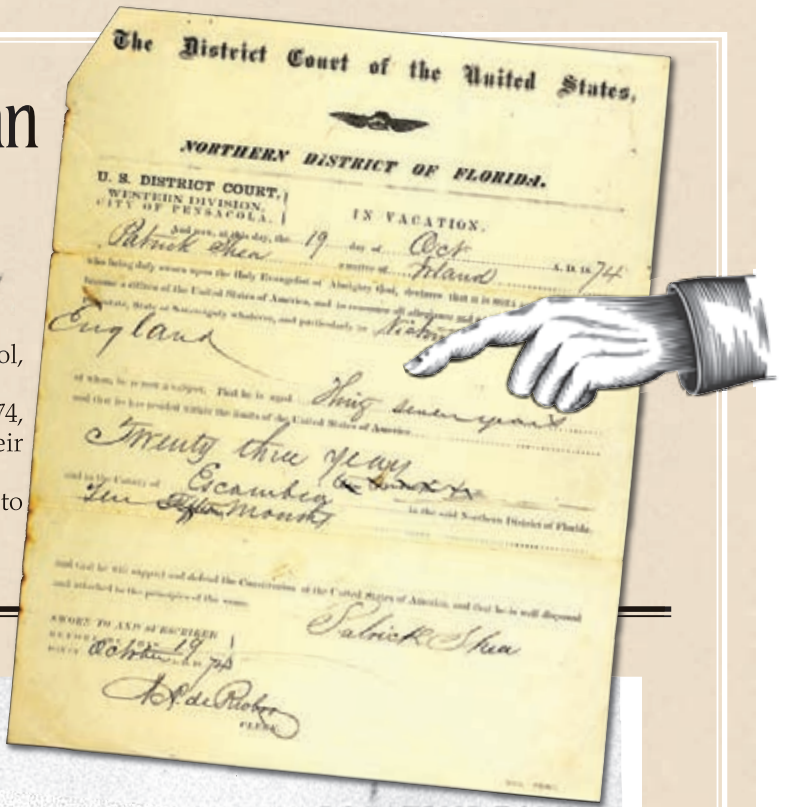 an
ol,
74,
eir
to
The District Court of the United States,
NORTHERN DISTRICT OF FLORIDA.
U. S. DISTRICT COURT,
WESTERN DIVISION,
CITY OF PENSACOLA.
IN VACATION.
And now, at this day, the 19 day of Oct A. D. 1874
Patrick Shea a native of Irland
who being duly sworn upon the Holy Evangelist of Almighty God, declares that it is
become a citizen of the United States of America, and to renounce all allegiance and
State or Sovereignty whatever, and particularly to
England
of whom, he is now a subject. That he is aged seven years
and that he has resided within the limits of the United States of America
Twenty three years
and in the County of Escambia
in the said Northern District of Florida.
Ten Months
and that he will support and defend the Constitution of the United States of America, and that he is well disposed
and attached to the principles of the same.
Patrick Shea
SWORN TO AND SUBSCRIBED
BEFORE 19
October 74
CLERK